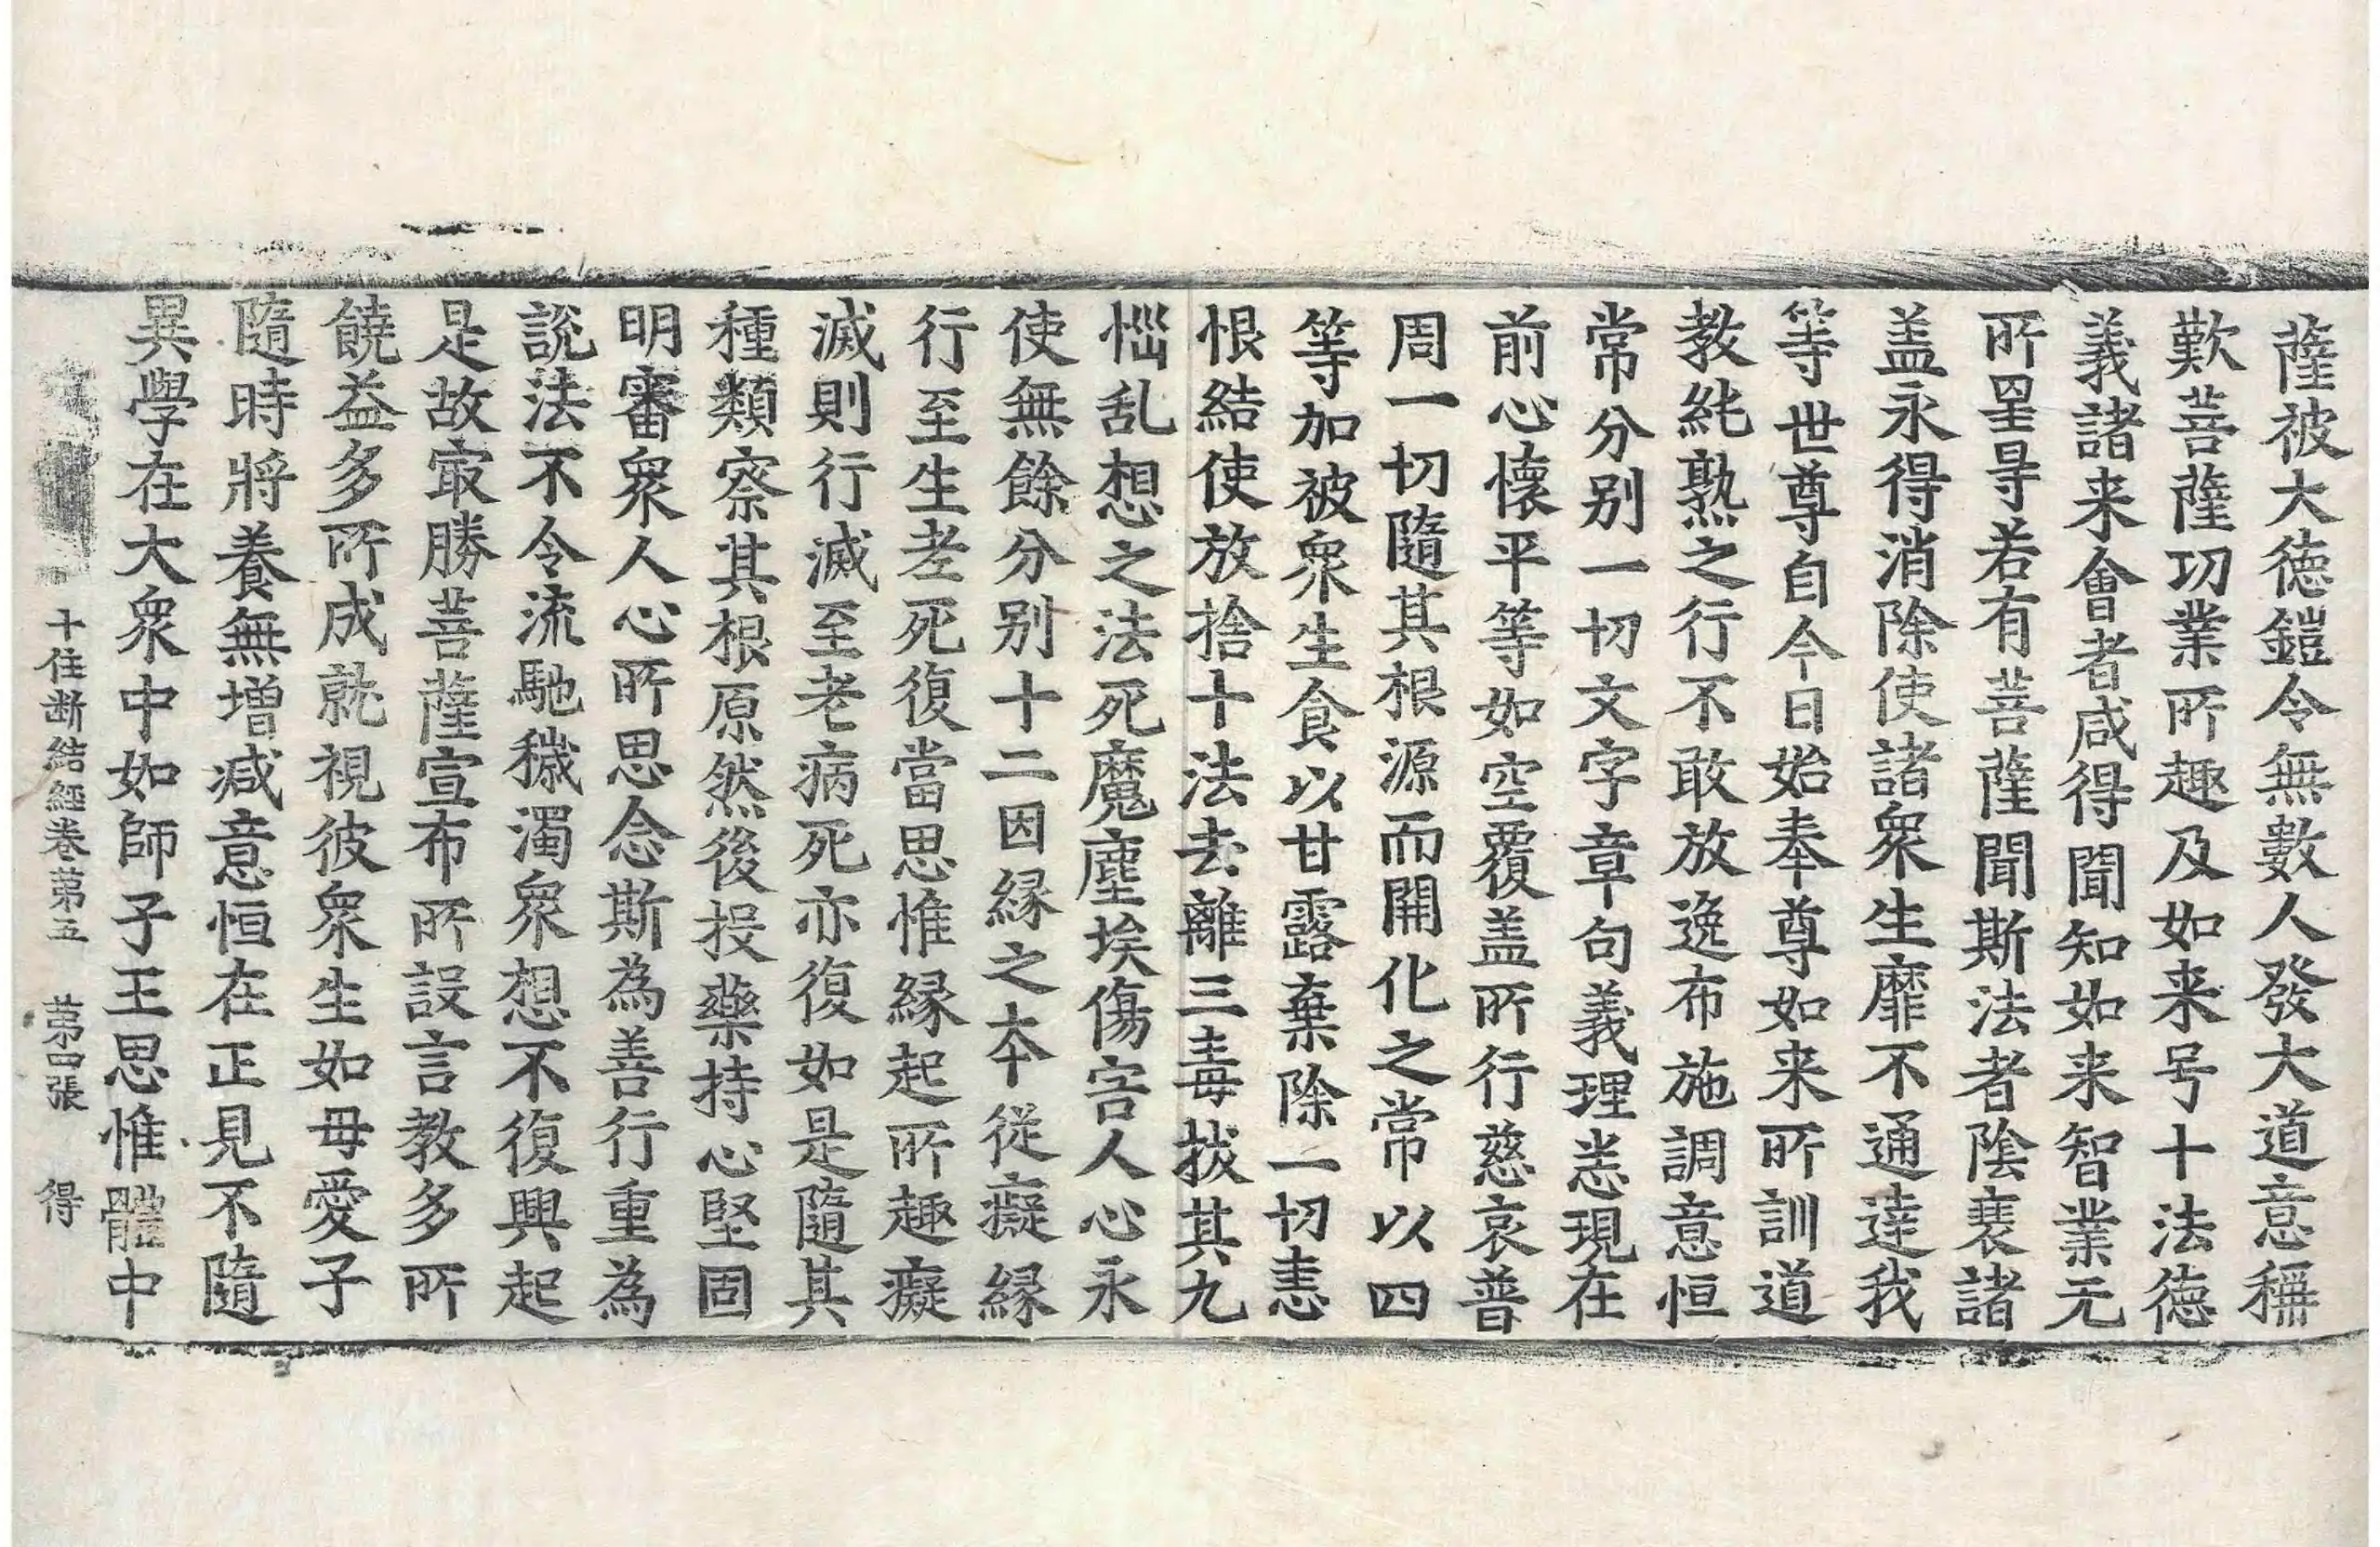 薩被大德鎧令無數人發大道意稱
歎菩薩功業所趣及如来号十法德
義諸来會者咸得聞知如来智業无
所罣㝵若有菩薩聞斯法者陰蓑諸
盖永得消除使諸衆生靡不通達我
等世尊自今日始奉尊如来所訓道
教純熟之行不敢放逸布施調意恒
常分别一切文字章句義理恙現在
前心懷平等如空覆盖所行慈哀普
周一切隨其根源而開化之常以四
等加被衆生食以甘露棄除一切恚
恨結使放捨十法去離三毒拔其九
惱乱想之法死魔塵埃傷害人心永
使無餘分别十二因縁之本從癡縁
行至生老死復當思惟縁起所趣癡
滅則行滅至老病死亦復如是隨其
種類察其根原然後投藥持心堅固
明審衆人心所思念斯為善行重為
說法不令流馳穢濁衆想不復興起
是故㝡勝菩薩宣布所設言教多所
饒益多所成就視彼衆生如母愛子
隨時將養無增减意恒在正見不隨
異學在大衆中如師子王思惟體中
十住断結經卷苐五　苐四張　得